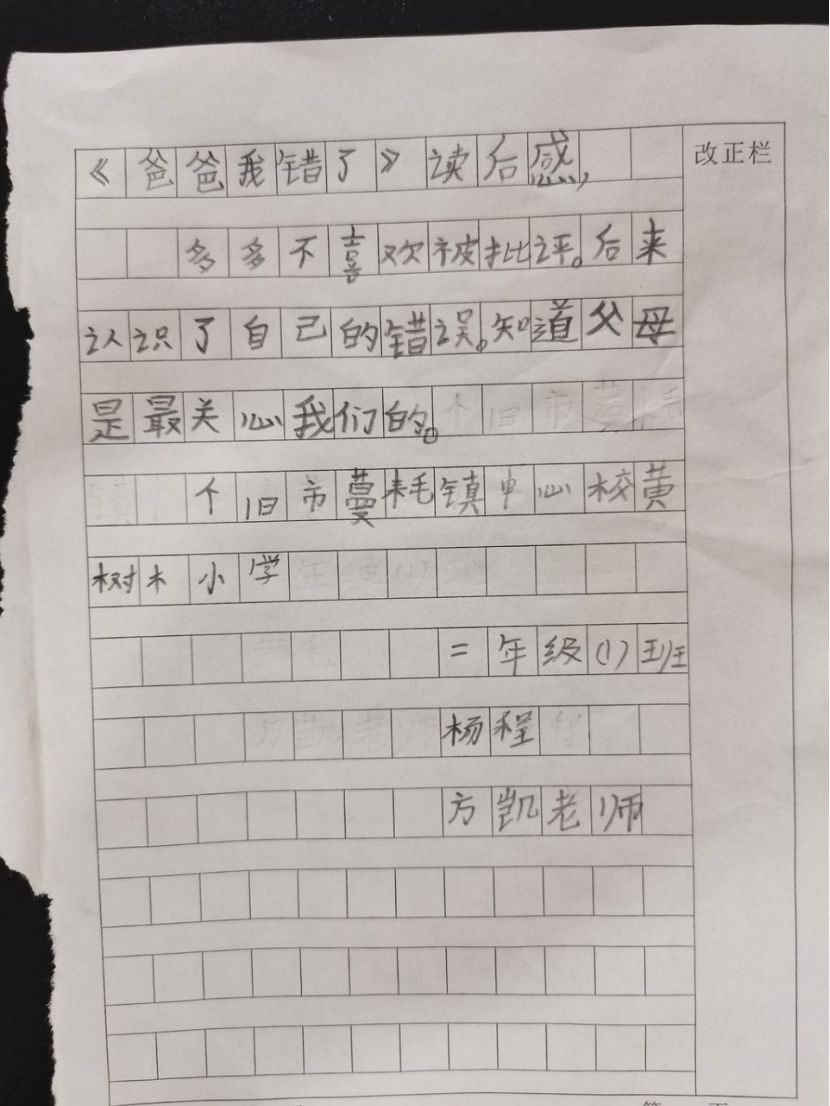 《爸爸我错了》读后感,
改正栏
多多不喜欢被批评。后来
认识了自己的错误。知道父母
是最关心我们的。
个旧市蔓耗镇中心校黄
树木小学
二年级(1)班
杨程
方凯老师